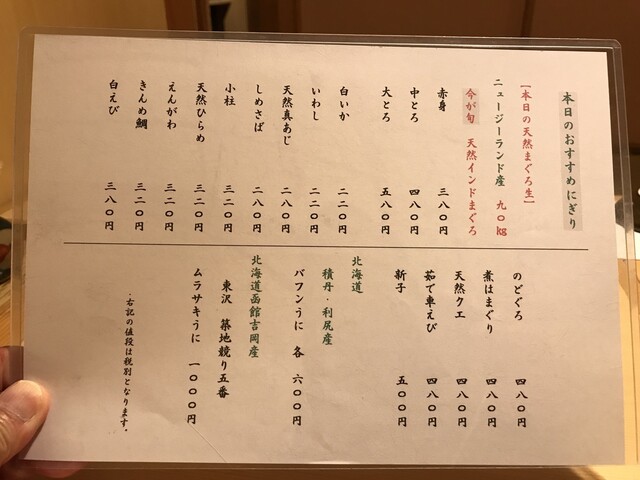 本日のおすすめにぎり
[本日の天然まぐろ生]
ニュージーランド産 九〇kg
今が旬 天然インドまぐろ
赤身 三八〇円
中とろ 四八〇円
大とろ 五八〇円
白いか 二二〇円
いわし 二二〇円
天然真あじ 二八〇円
しめさば 二八〇円
小柱 三二〇円
天然ひらめ 三二〇円
えんがわ 三二〇円
きんめ鯛 三二〇円
白えび 三八〇円
のどぐろ 四八〇円
煮はまぐり 四八〇円
天然クエ 四八〇円
茹で車えび 四八〇円
新子 五〇〇円
北海道
積丹・利尻産
バフンうに 各 六〇〇円
北海道函館吉岡産
東沢 築地競り五番
ムラサキうに 一〇〇〇円
・右記の値段は税別となります。